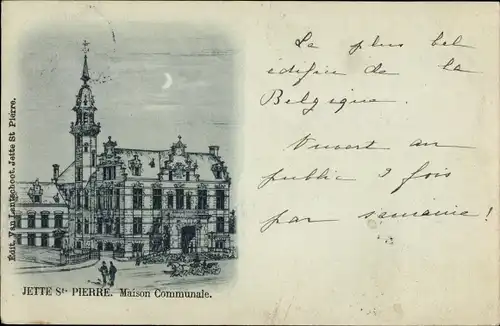 Le plus bel
édifice de la
Belgique.
Ouvert au
public 3 fois
par semaine!
Édit. Van Lantschoot, Jette St Pierre.
JETTE St- PIERRE. Maison Communale.